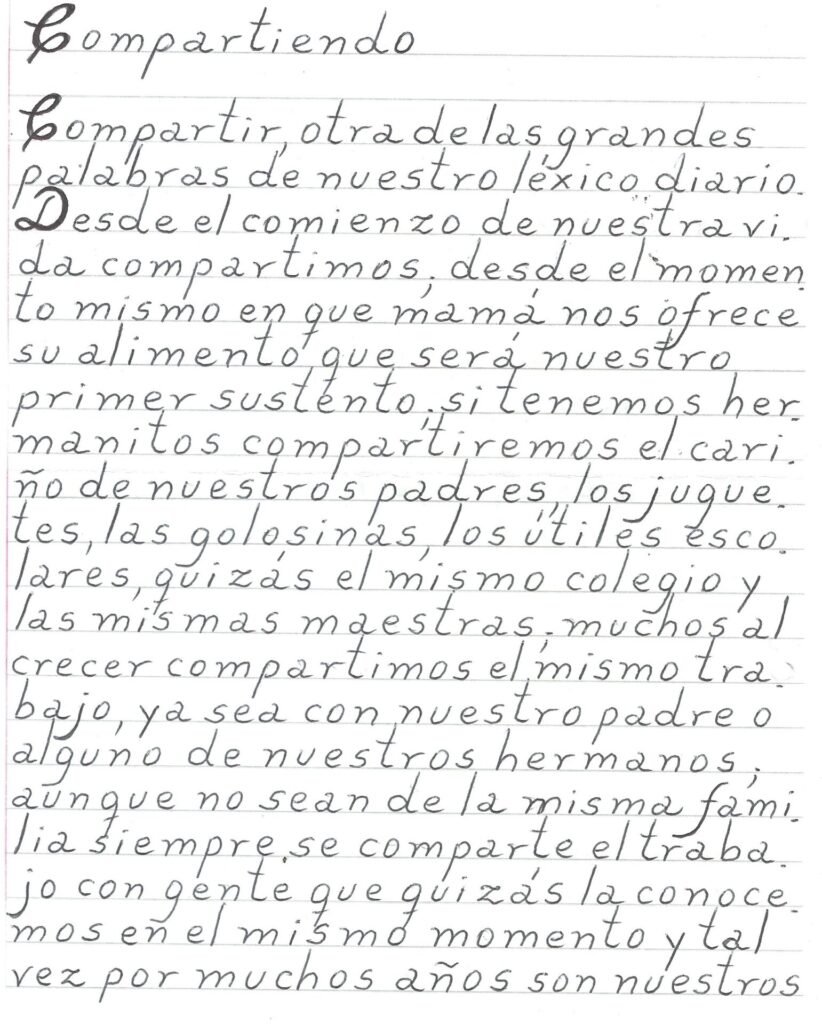 Compartiendo
Compartir, otra de las grandes
palabras de nuestro léxico diario.
Desde el comienzo de nuestra vi.
da compartimos; desde el momen
to mismo en que mamá nos ofrece
su alimento, que será nuestro
primer sustento; si tenemos her.
manitos compartiremos el cari.
ño de nuestros padres, los jugue.
tes, las golosinas, los útiles esco.
lares, quizás el mismo colegio y
las mismas maestras; muchos al
crecer compartimos el mismo tra.
bajo, ya sea con nuestro padre o
alguno de nuestros hermanos;
aunque no sean de la misma fami.
lia siempre se comparte el traba.
jo con gente que quizás la conoce.
mos en el mismo momento y tal
vez por muchos años son nuestros